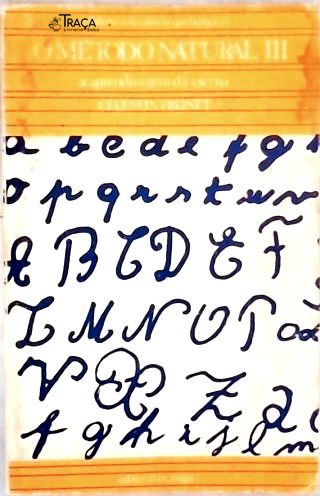 TRAÇA
Livraria e Sebo
O MÉTODO NATURAL III
a aprendizagem da escrita
CELESTIN FREINET
a b c d e f g
o p q r s t u v
A B C D E F
L M N O P a
V X Z a
f g h i j l m
editorial estampa